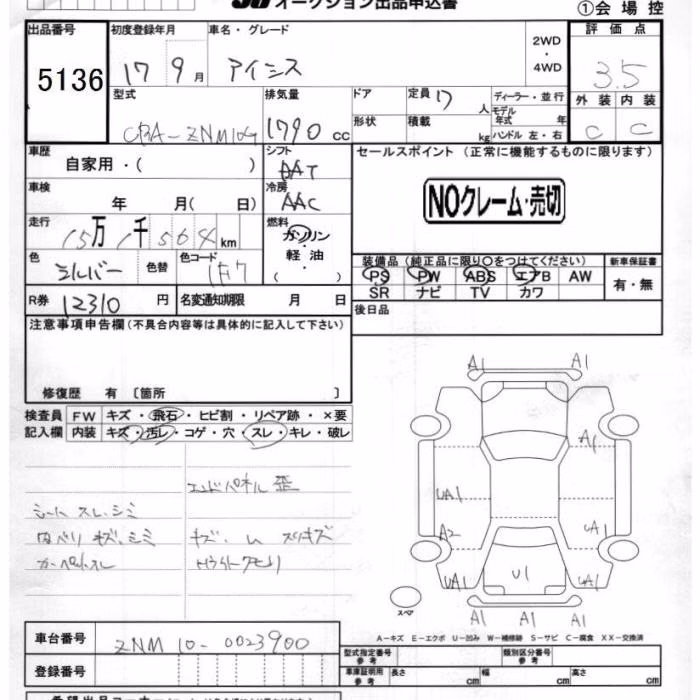 オークション出品申込書
①会場控
出品番号
5136
初度登録年月
17 9月
車名・グレード
アイシス
2WD
・
4WD
評価点
3.5
外装 内装
C C
型式
CBA-ZNM10G
排気量
1790 cc
ドア
形状
定員 7人
積載 kg
ディーラー・並行
モデル年式 年
ハンドル 左・右
車歴
自家用・( )
シフト
AT
セールスポイント (正常に機能するものに限ります)
NOクレーム・売切
車検
年 月( 日)
冷房
AAC
走行
15万1千564km
燃料
ガソリン
軽油
( )
色
シルバー
色替
色コード
1F7
装備品 (純正品に限り○をつけてください)
PS PW ABS エアB AW
SR ナビ TV カワ
新車保証書
有・無
R券 12310 円
名変通知期限 月 日
後日品
注意事項申告欄 (不具合内容等は具体的に記入して下さい)
修復歴 有 〔箇所 〕
検査員記入欄
FW キズ・飛石・ヒビ割・リペア跡・×要
内装 キズ・汚レ・コゲ・穴・スレ・キレ・破レ
エンドパネル 歪
シート スレ、シミ
内ベリ キズ、シミ
キズ、ム スリキズ
A1 A1
A1
UA1
UA1
A2
UA1 U1 UA1
A1 A1 A1
スペア
A-キズ E-エクボ U-凹み W-補修跡 S-サビ C-腐食 XX-交換済
車台番号
ZNM10-0023900
登録番号
型式指定番号 参考
類別区分番号 参考
車庫証明用 参考
長さ cm
幅 cm
高さ cm